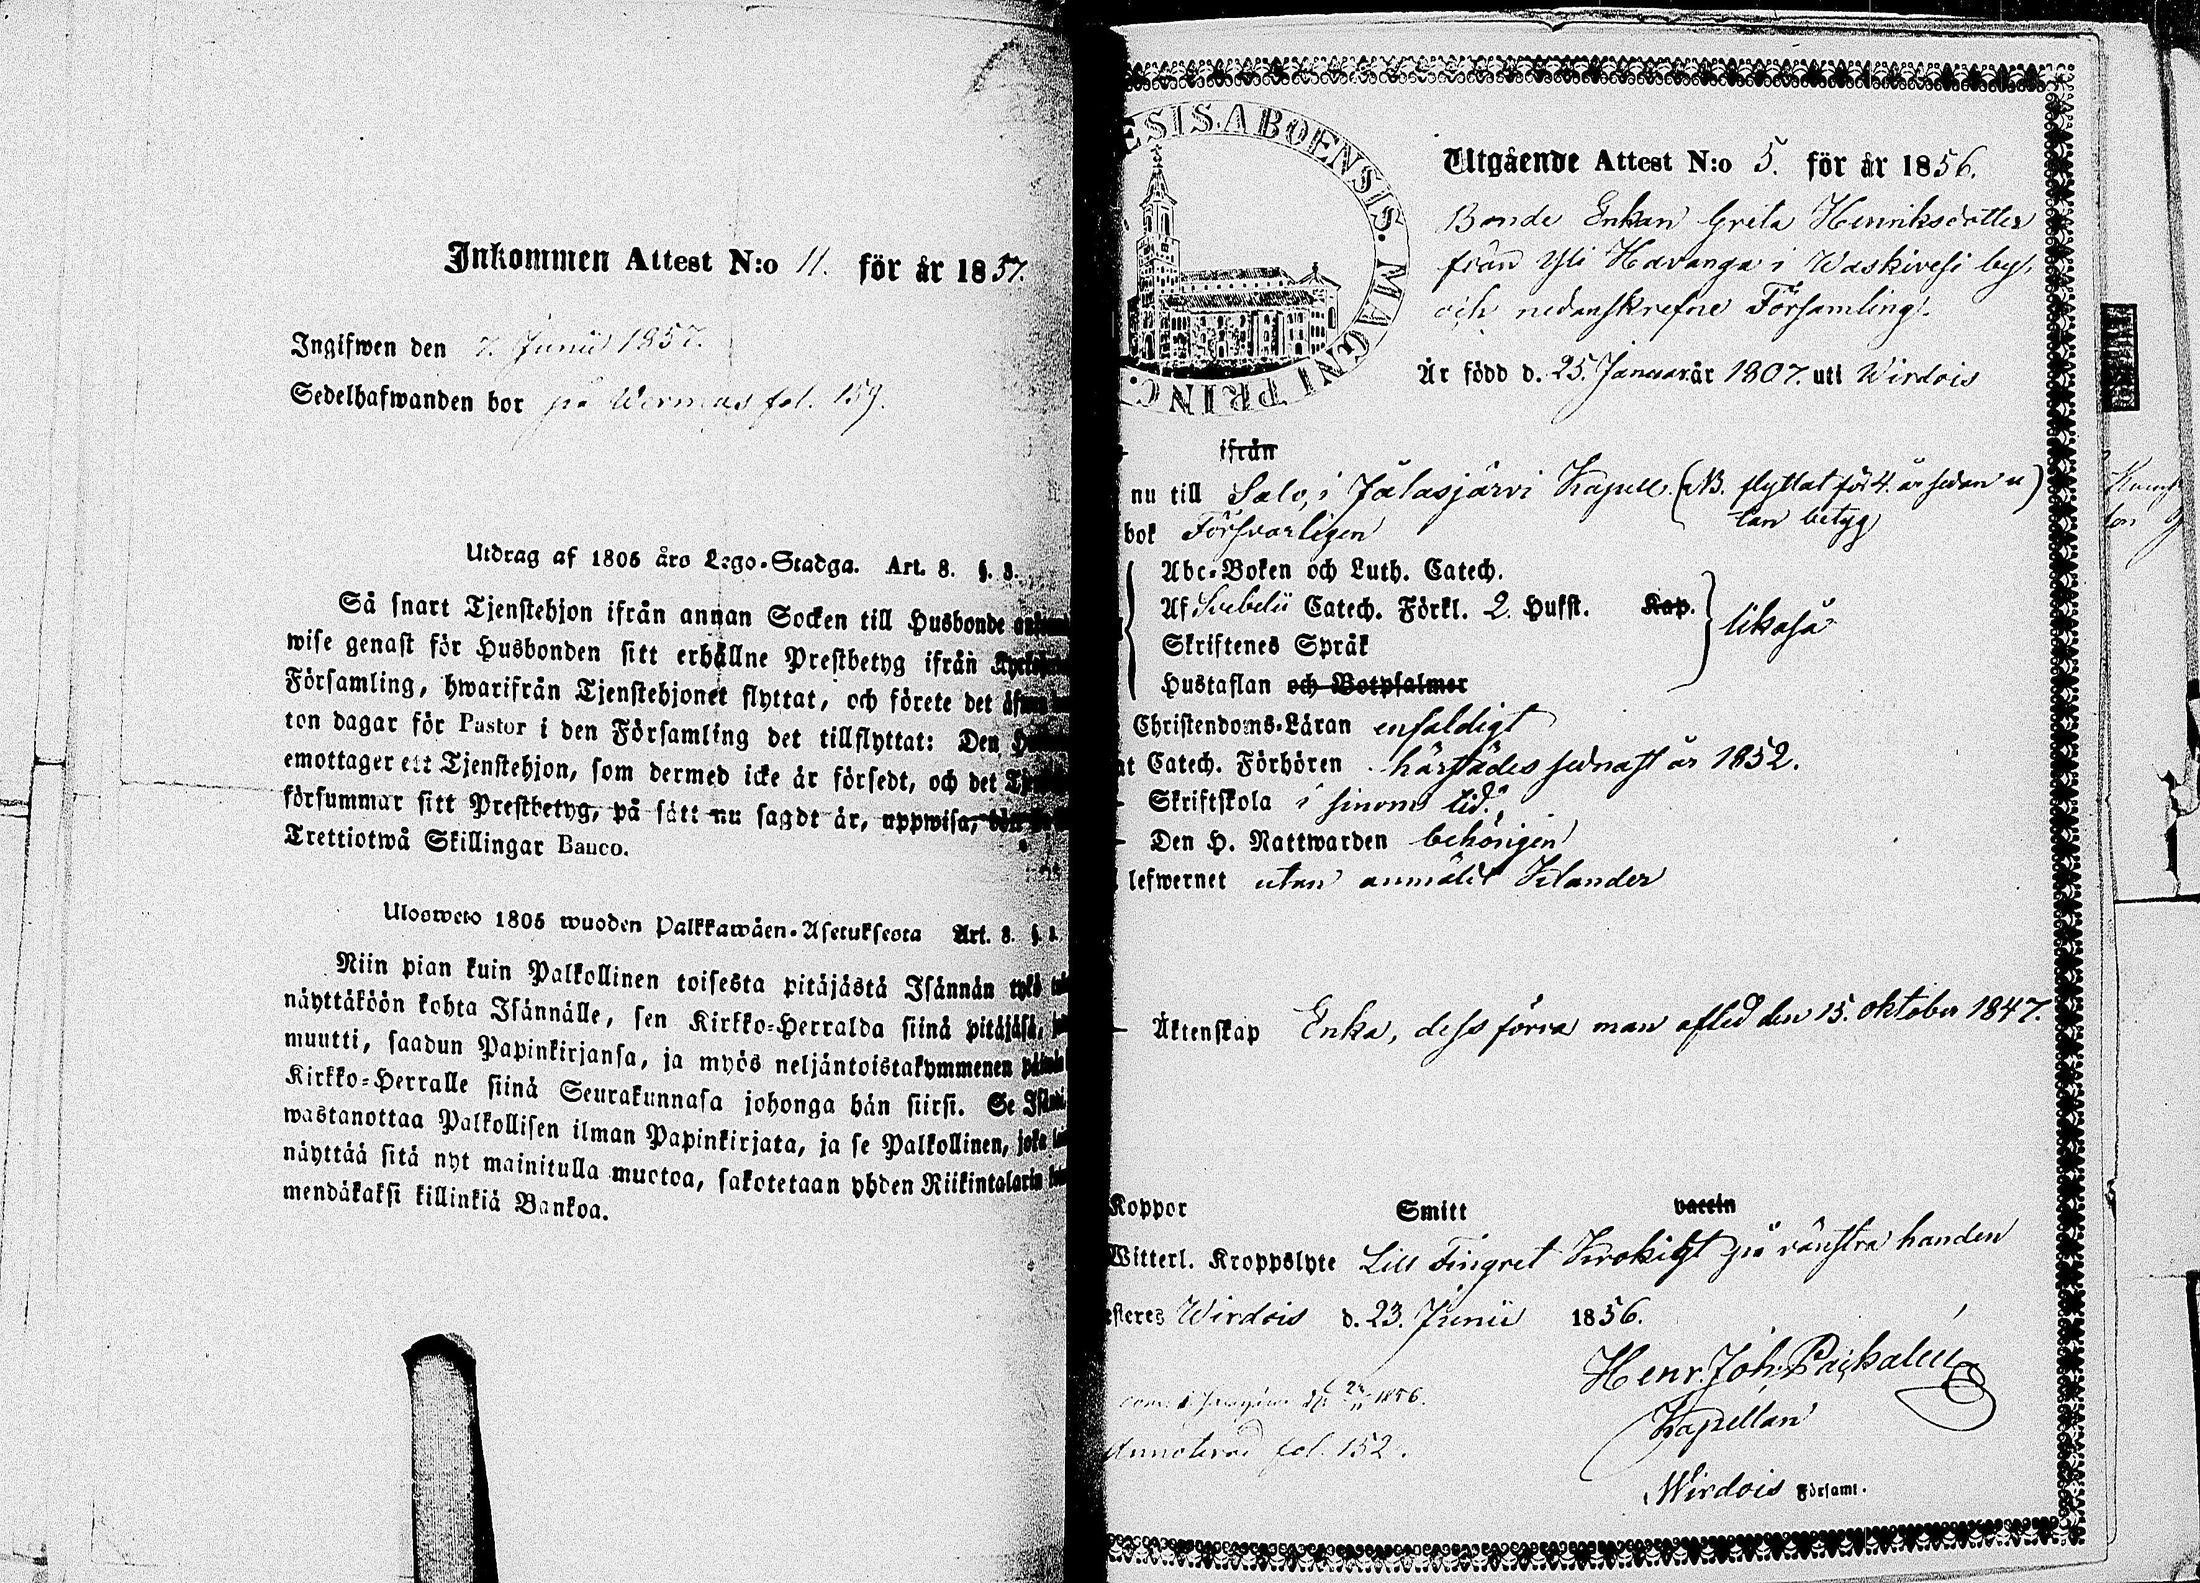 Inkommen Attest N:o 11. för år 1857.
Ingifwen den 7. Junii 1857.
Sedelhafwanden bor på Wermas fol. 159.
Utdrag af 1805 års Lego-Stadga. Art. 8. §. 3.
Så snart Tjenstehjon ifrån annan Socken till Husbonde
wise genast för Husbonden sitt erhållne Prestbetyg ifrån
Församling, hwarifrån Tjenstehjonet flyttat, och förete det
ton dagar för Pastor i den Församling det tillflyttat: Den
emottager ett Tjenstehjon, som dermed icke är försedt, och det
försummar sitt Prestbetyg, på sätt nu sagdt är, uppwisa,
Trettiotwå Skillingar Banco.
Ulosweto 1805 wuoden Palkkawäen-Asetuksesta Art. 8. §.
Niin pian kuin Palkollinen toisesta pitäjästä Isännän tykö
näyttäköön kohta Isännälle, sen Kirkko-Herralda siinä pitäjäsä,
muutti, saadun Papinkirjansa, ja myös neljäntoistakymmenen
Kirkko-Herralle siinä Seurakunnasa johonga hän siirsi. Se
wastanottaa Palkollisen ilman Papinkirjata, ja se Palkollinen, joka
näyttää sitä nyt mainitulla muotoa, sakotetaan yhden Riikintalarin
mendäkaksi killinkiä Bankoa.
ESIS. ABOENSIS. MAGNI PRINC.
Utgående Attest N:o 5. för år 1856.
Bonde Enkan Greta Henriksdotter
från Yli Havanga i Waskivesi by,
och nedanskrefne Församling.
Är född d. 25. Januar år 1807. uti Wirdois
ifrån
nu till Salo, i Jalasjärvi Kapell. (NB. flyttat för 4. år sedan u)
tan betyg
bok Försvarligen
Abc-Boken och Luth. Catech.
Af Svebelii Catech. Förkl. 2. Hufst. Kap.
likaså
Skriftenes Språk
Hustaflan och Botpsalmer
Christendoms-Läran enfaldigt
at Catech. Förhören härstädes sednast år 1852.
Skriftskola i sinom tid.
Den H. Nattwarden behörigen
lefwernet utan anmäldt Klander
Äktenskap Enka, dess förra man afled den 15. oktober 1847.
Koppor Smitt vaccin
Witterl. Kroppslyte Lill Fingret Krokigt på vänstra handen
esteres Wirdois d. 23. Junii 1856.
Henr. Joh. Paschalin
Kapellan
1856.
Annoterad fol. 152.
Wirdois Församl.